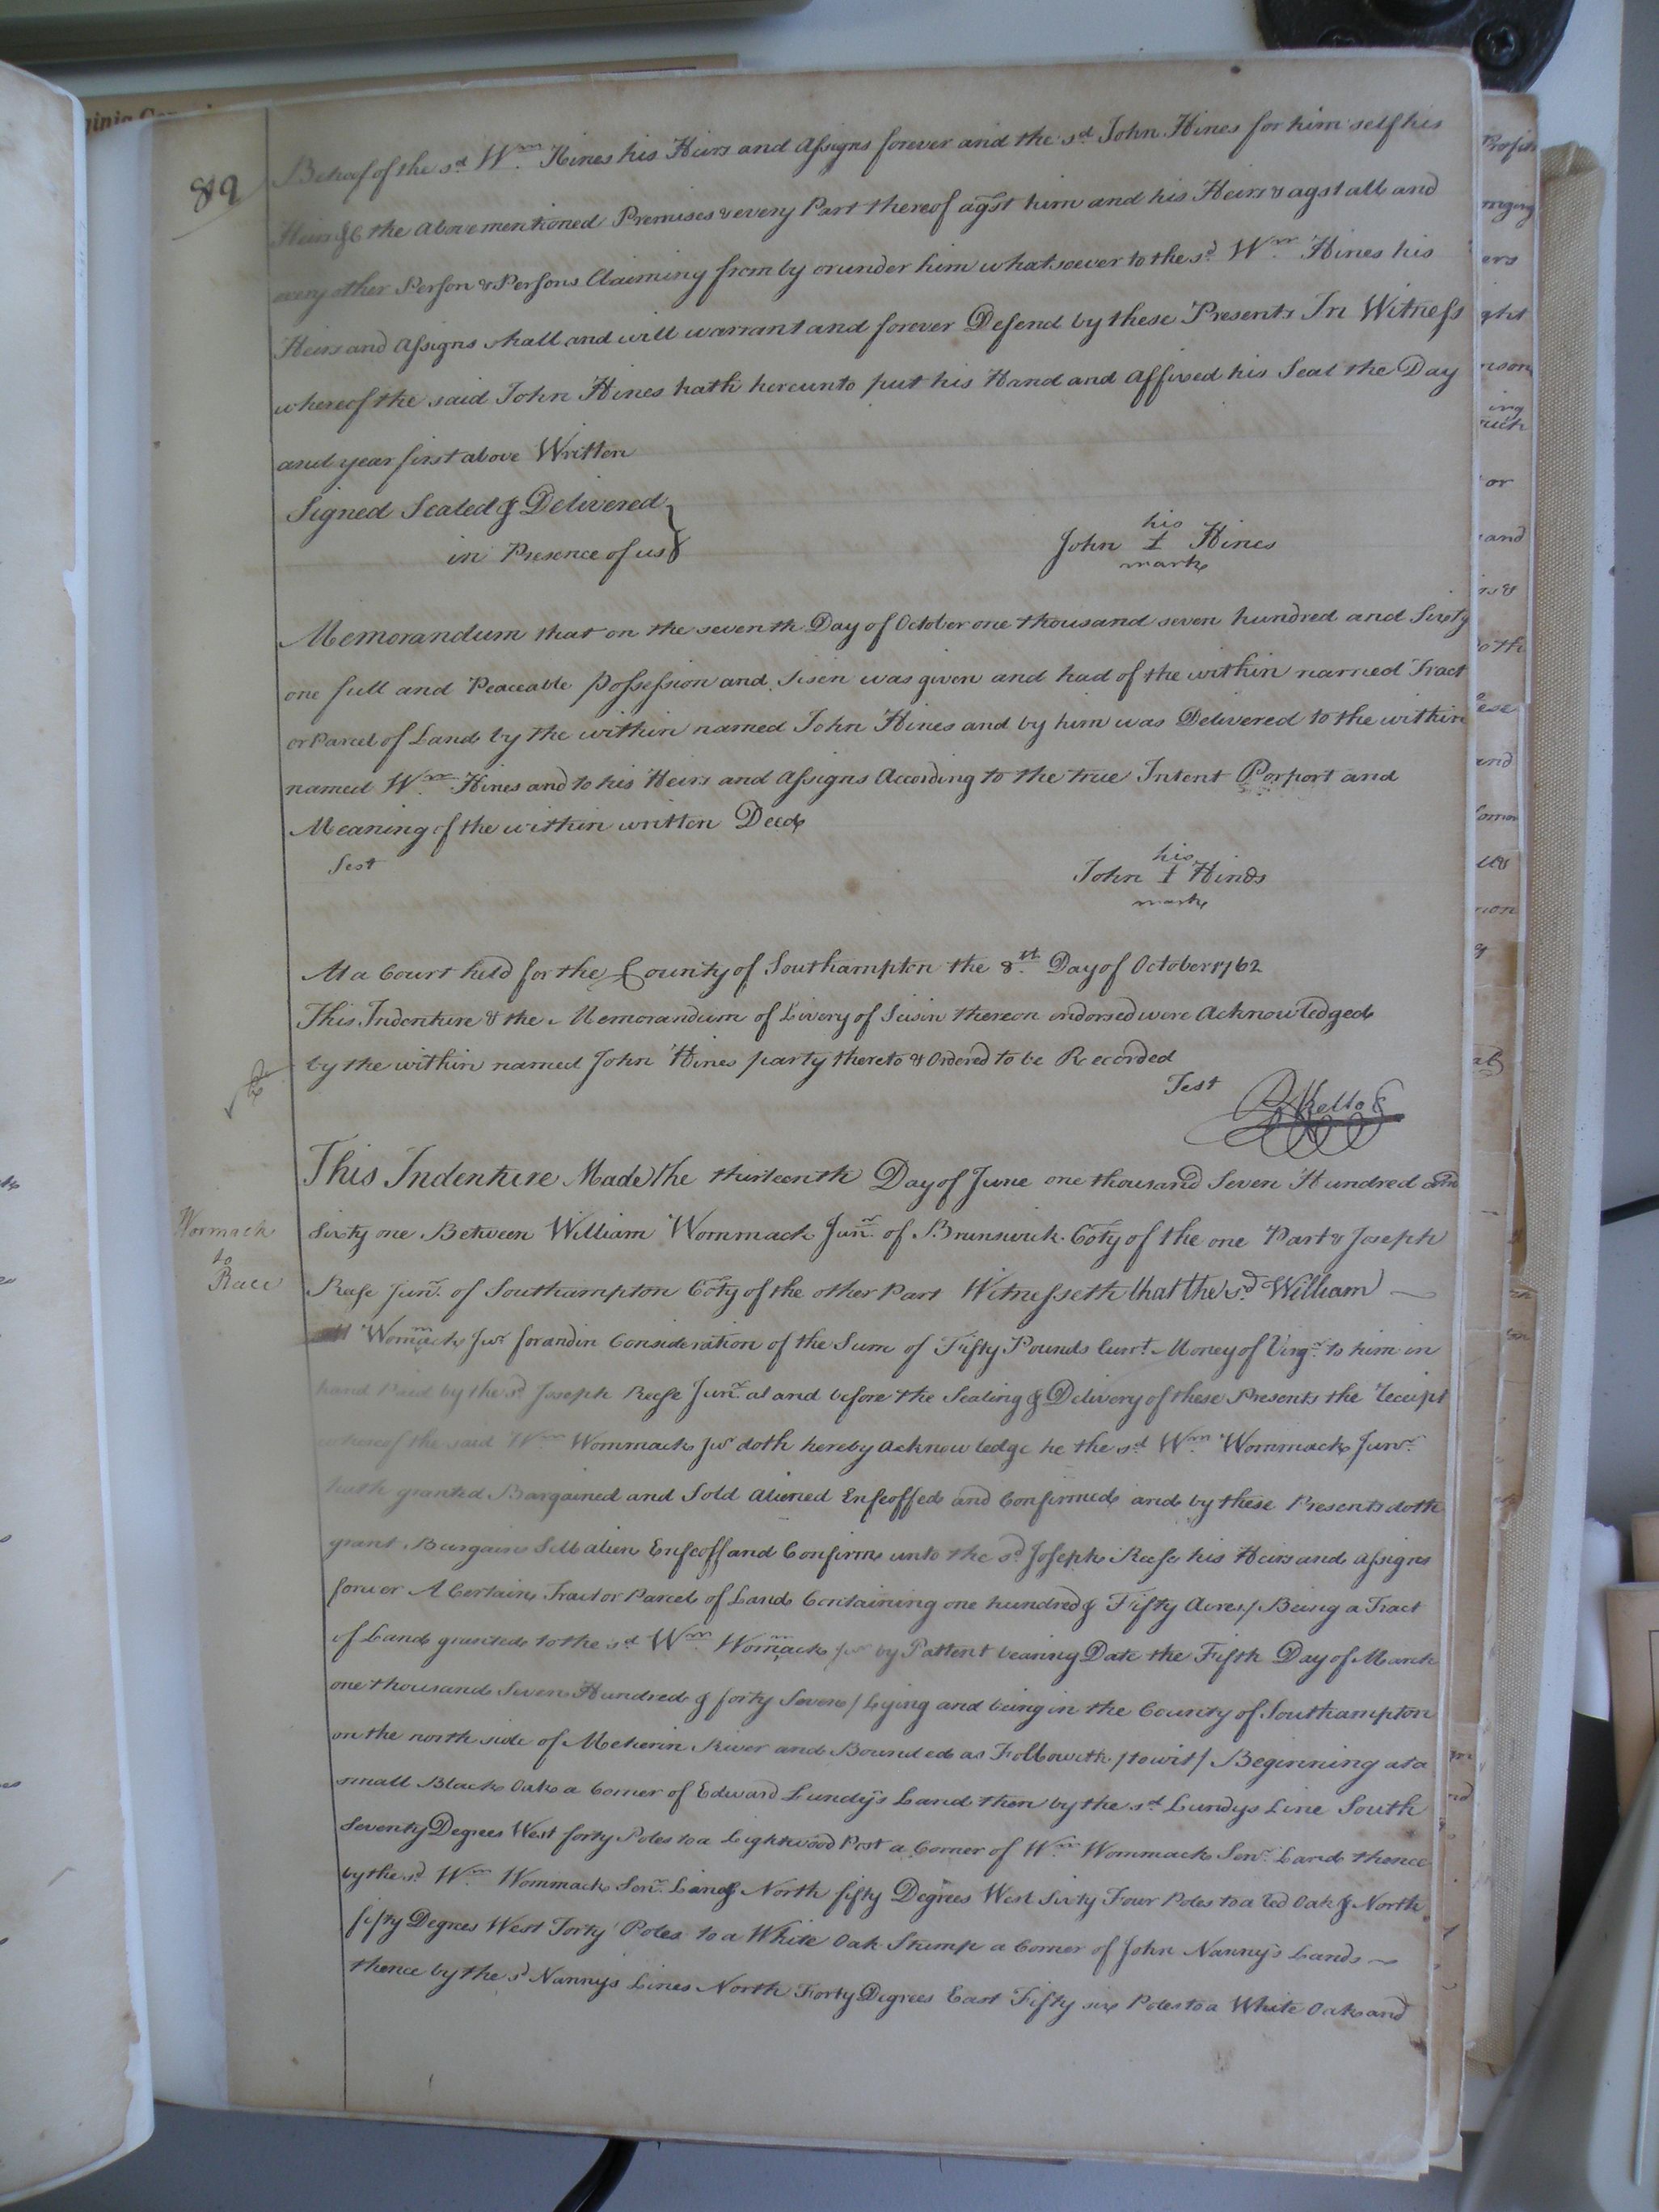 89
Behoof of the sd. Wm. Hines his Heirs and Assigns forever and the sd. John Hines for him self his
Heirs &c the Above mentioned Premises & every Part thereof agst him and his Heirs & agst all and
every other Person & Persons Claiming from by or under him whatsoever to the sd. Wm. Hines his
Heirs and Assigns shall and will warrant and forever Defend by these Presents In Witness
whereof the said John Hines hath hereunto put his Hand and Affixed his Seal the Day
and year first above Written
Signed Sealed & Delivered
in Presence of us
his
John I Hines
mark
Memorandum that on the seventh Day of October one thousand seven hundred and Sixty
one full and Peaceable Possession and Sisin was given and had of the within named Tract
or Parcel of Land by the within named John Hines and by him was Delivered to the within
named Wm. Hines and to his Heirs and Assigns According to the true Intent Porport and
Meaning of the within written Deed
Test
his
John I Hinds
mark
At a Court held for the County of Southampton the 8th. Day of October 1762
This Indenture & the Memorandum of Livery of Seisin thereon indorsed were Acknowledged
by the within named John Hines party thereto & Ordered to be Recorded
Test
R Kello
This Indenture Made the thirteenth Day of June one thousand Seven Hundred and
Wormack
to
Race
Sixty one Between William Wommack Junr. of Brunswick Coty of the one Part & Joseph
Reese Junr. of Southampton Coty of the other Part Witnesseth that the sd. William
Wommack Jur. for and in Consideration of the Sum of Fifty Pounds Curt. Money of Virga. to him in
hand Paid by the sd. Joseph Reese Junr. at and before the Sealing & Delivery of these Presents the receipt
whereof the said Wm. Wommack Jur doth hereby Acknowledge he the sd. Wm. Wommack Junr.
hath granted Bargained and Sold aliened Enfeoffed and Confirmed and by these Presents doth
grant Bargain Sell alien Enfeoff and Confirm unto the sd. Joseph Reese his Heirs and assigns
forever A Certain Tract or Parcel of Land Containing one hundred & Fifty Acres / Being a Tract
of Land granted to the sd. Wm. Wommack Jur by Pattent bearing Date the Fifth Day of March
one thousand Seven Hundred & forty Seven / Lying and being in the County of Southampton
on the north side of Meherin River and Bounded as Followeth / to wit / Beginning at a
small Black Oak a Corner of Edward Lundy's Land then by the sd. Lundys Line South
Seventy Degrees West forty Poles to a Lightwood Post a Corner of Wm. Wommack Senr. Land thence
by the sd. Wm. Wommack Senr. Land North fifty Degrees West Sixty Four Poles to a red Oak & North
fifty Degrees West Forty Poles to a White Oak Stump a Corner of John Nanny's Lands
thence by the sd. Nannys Lines North Forty Degrees East Fifty six Poles to a White Oak and